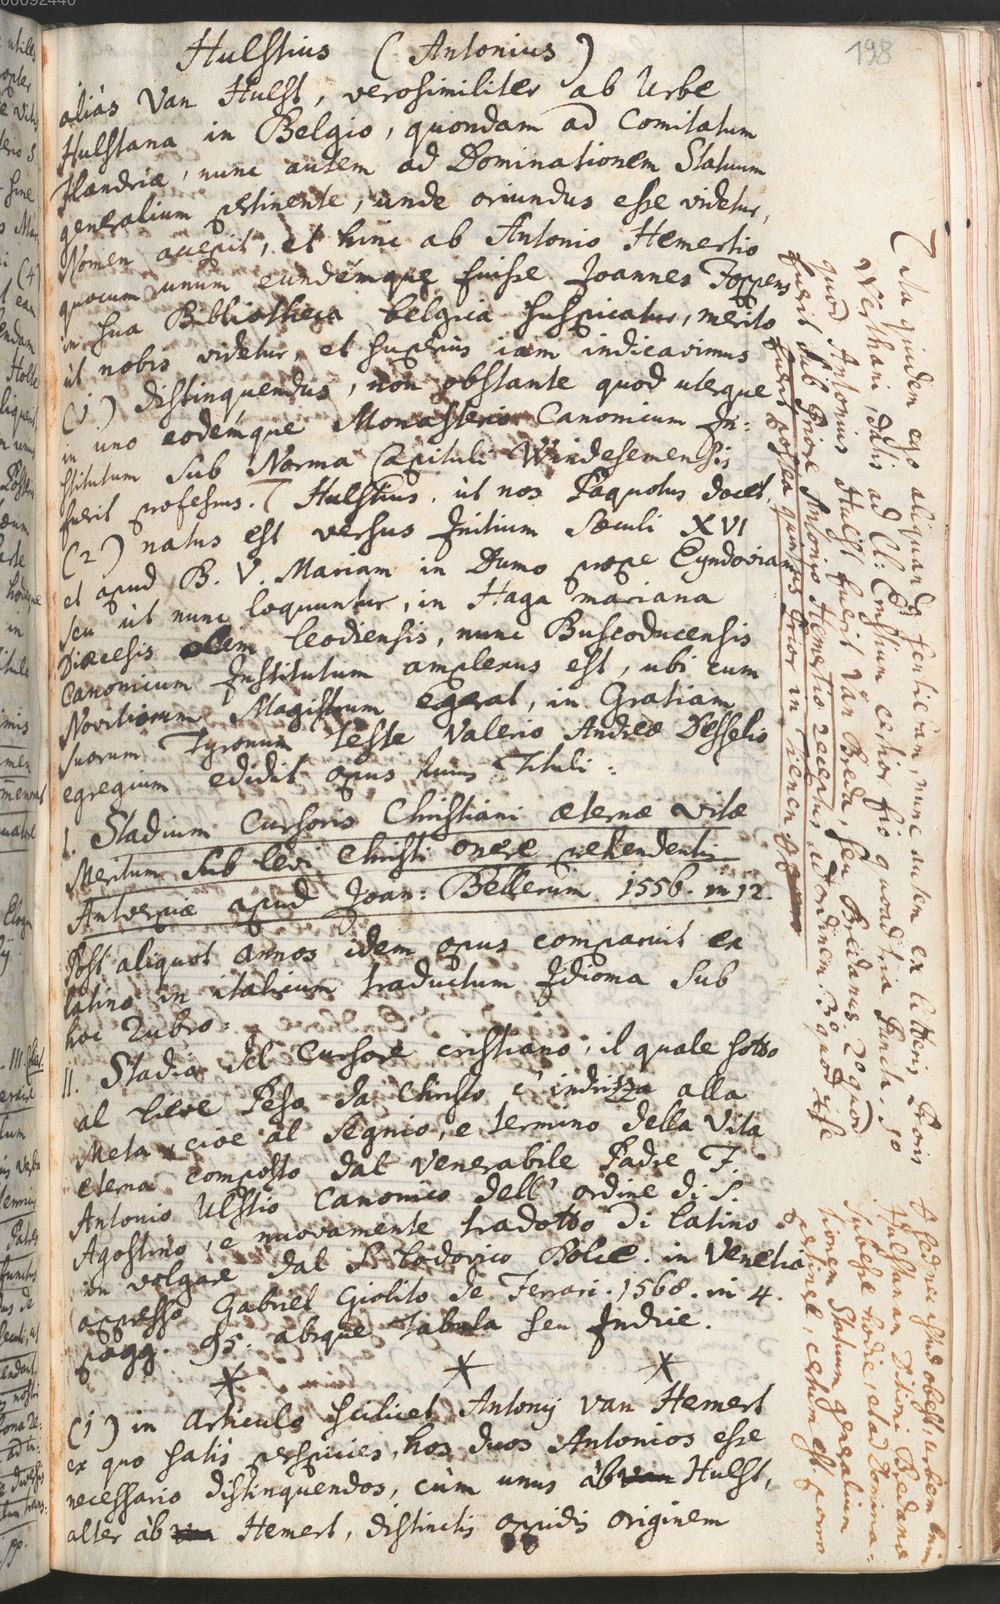 198
Hulstius (Antonius)
aliàs Van Hulst, verosimiliter ab Urbe
Hulstana in Belgio, quondam ad Comitatum
Flandriæ, nunc autem ad Dominationem Statuum
generalium pertinente, unde oriundus esse videtur,
Nomen accepit, et hinc ab Antonio Hemertio
quocum unum eundémque fuisse Joannes Foppens
in sua Bibliotheca belgica suspicatur, merito
ùt nobis videtur, et superius iam indicavimus
(1) distinguendus, non obstante quod uterque
in uno eodémque Monasterio Canonicum In:
stitutum sub Norma Capituli Windesemensis
fuerit professus. T Hulstius, ùt nos Paquotus docet,
(2) natus est versus Initium Sæculi XVI
et apud B. V. Mariam in Dumo prope Eyndoviam
seu ùt nunc loquuntur, in Haga mariana
Diœcesis olim leodiensis, nunc Buscoducensis
Canonicum Institutum amplexus est, ubi cum
Novitiorum Magistrum egerat, in Gratiam
suorum Tyronum teste Valerio Andreæ Desselio
egregium edidit opus huius Tituli:
I. Stadium Cursoris Christiani æternæ vitæ
Meritum sub levi Christi onere prehendentis
Antverpiæ apud Joan: Bellerum 1556. in 12.
Post aliquot annos idem opus comparuit ex
latino in italicum traductum Idioma sub
hoc Rubro:
II. Stadio del Cursore cristiano, il quale sotto
al lieve Peso da Christo s' indrizza alla
Meta, cioe al segnio, e termino della Vita
eterna composto dal Venerabile Padre F.
Antonio Ulstio Canonico dell' ordine di S.
Agostino, e nuovamente tradotto di latino
in volgare dal S. Lodovico Dolce. in Venetia
appresso Gabriel Giolito de Ferrari. 1568. in 4.
pagg. 95. absque tabula seu Indice.
* * *
(1) in Articulo scilicet Antonij van Hemert
ex quo satis perspicies, hos duos Antonios esse
necessario distinguendos, cùm unus àb Hulst,
alter àb Hemert, distinctis oppidis originem
T Ita quidem ego aliquando sentieram, nunc autem ex litteris Prioris
Werthani, datis ad Cl: Ernstium certior fio quoad tria puncta 1o
quod Antonius Hulst fuerit van Breda, seu Bredanus. 2o quod
fuerit sub Priore Antonio Hemertio receptus ad ordinem. 3o quod ipse
fuerit postea quintus Prior in
# sed nec istud obest, urbem enim
Hulstanam Ditioni Bredanæ
subesse hodie, et ad Domina-
tionem Statuum generalium
pertinere, certum est. porro